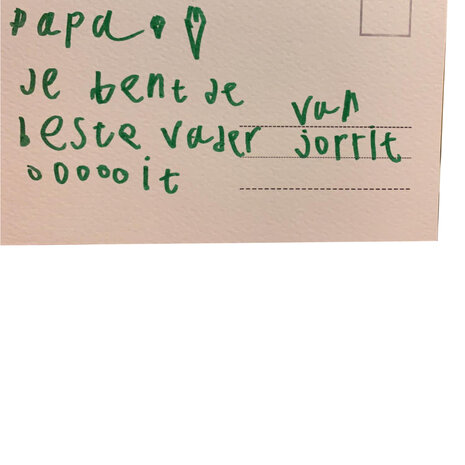 papa!
Je bent de
beste vader
oooooit
van
jorrit